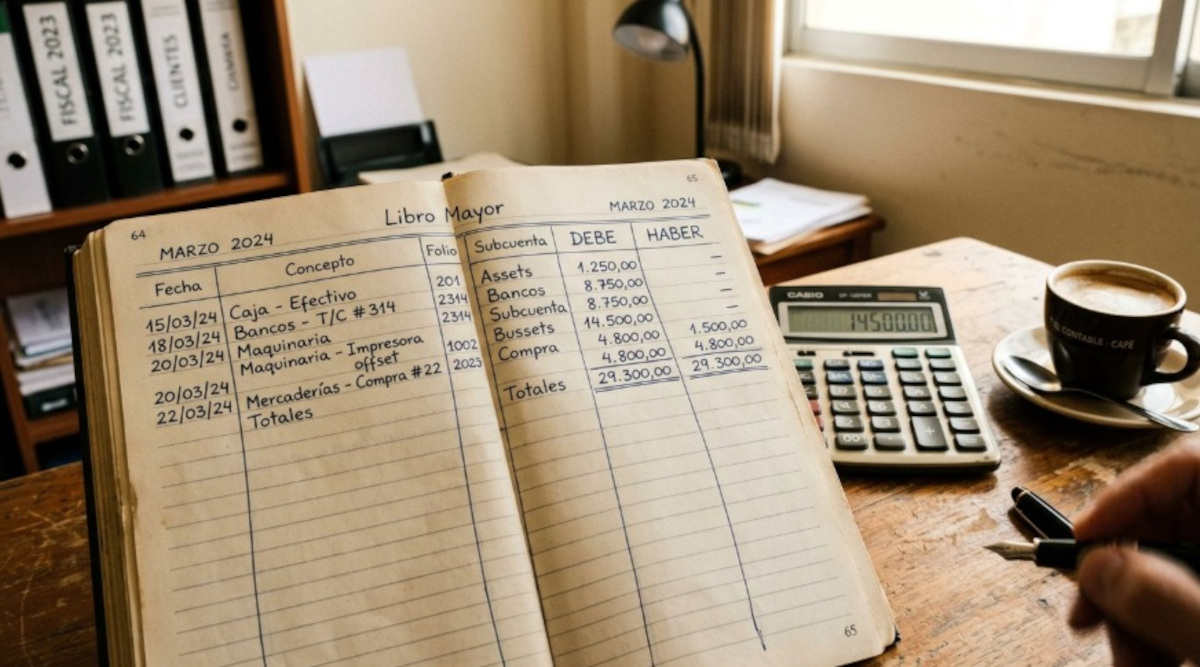 FISCAL 2023
FISCAL 2023
CLIENTES
64
MARZO 2024
Libro Mayor
Fecha Concepto Folio
15/03/24 Caja - Efectivo 201
18/03/24 Bancos - T/C #314 2314
20/03/24 Maquinaria 2314
Maquinaria - Impresora 1002
offset
20/03/24 Mercaderías - Compra #22 2023
22/03/24 Totales
65
MARZO 2024
Subcuenta DEBE HABER
Assets 1.250,00 –
Bancos 8.750,00
Subcuenta 8.750,00 –
Bussets 14.500,00 –
Compra 4.800,00 1.500,00
4.800,00 4.800,00
Totales 29.300,00 29.300,00
65
CASIO
14500.00
CONTABLE · CAFÉ